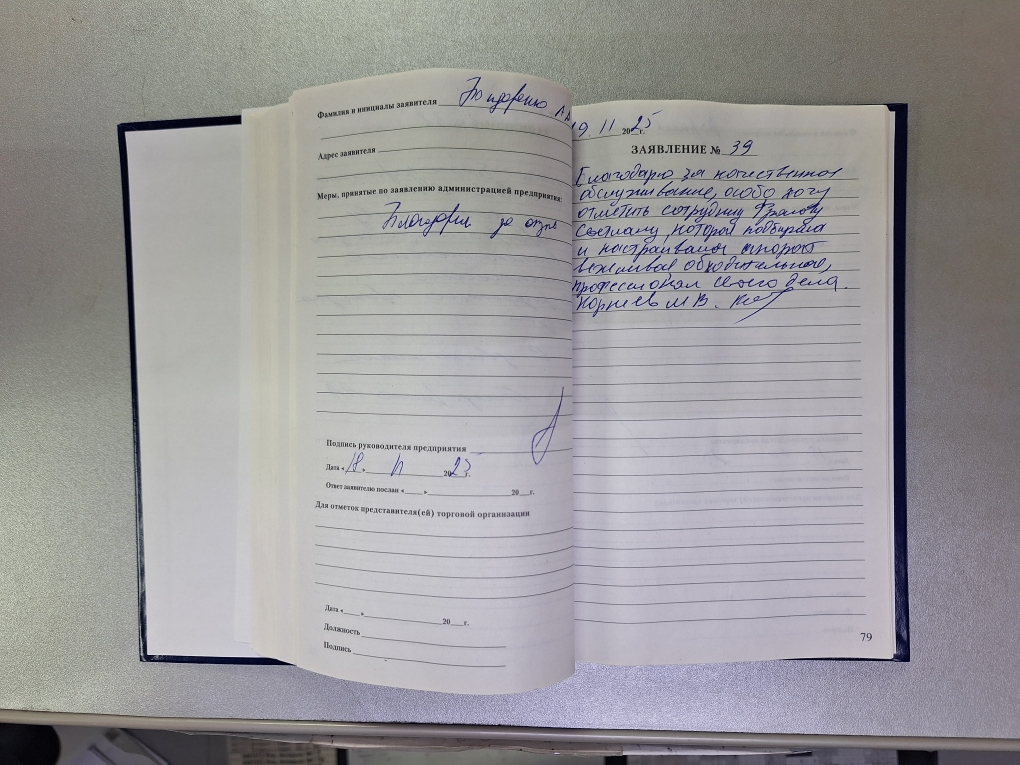 Фамилия и инициалы заявителя Бондаренко А А
Адрес заявителя
Меры, принятые по заявлению администрацией предприятия:
Благодарим за отзыв
Подпись руководителя предприятия
Дата «18» 11 2025г.
Ответ заявителю послан «___» 20__г.
Для отметок представителя(ей) торговой организации
Дата «___» 20__г.
Должность
Подпись
19 11 2025г.
ЗАЯВЛЕНИЕ № 39
Благодарю за качественное
обслуживание, особо хочу
отметить сотрудницу
Светлану, которая подбирала
и настраивала аппарат
вежливая обходительная,
профессионал своего дела.
Корнев М В.
79